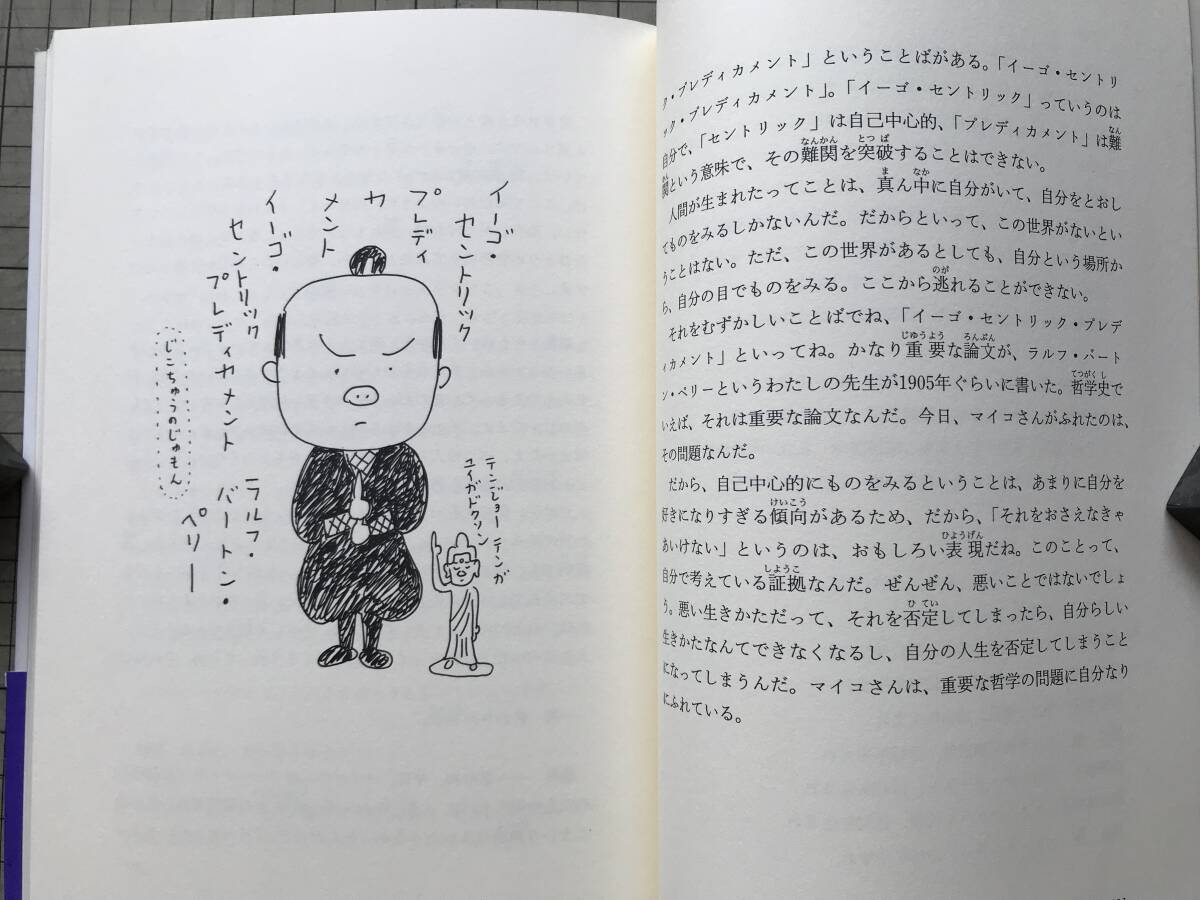 イーゴ・
セントリック
プレディ
カ
メント
イーゴ・
セントリック
プレディカメント
じこちゅうのじゅもん
ラルフ・
バートン・
ペリー
テンジョーテンガ
ユイガドクソン
ク・プレディカメント」ということばがある。「イーゴ・セントリ
ック・プレディカメント」。「イーゴ・セントリック」っていうのは
自分で、「セントリック」は自己中心的、「プレディカメント」は難
関という意味で、その難関を突破することはできない。
人間が生まれたってことは、真ん中に自分がいて、自分をとおし
てものをみるしかないんだ。だからといって、この世界がないとい
うことはない。ただ、この世界があるとしても、自分という場所か
ら、自分の目でものをみる。ここから逃れることができない。
それをむずかしいことばでね、「イーゴ・セントリック・プレデ
ィカメント」といってね。かなり重要な論文が、ラルフ・バート
ン・ペリーというわたしの先生が1905年ぐらいに書いた。哲学史で
いえば、それは重要な論文なんだ。今日、マイコさんがふれたのは、
その問題なんだ。
だから、自己中心的にものをみるということは、あまりに自分を
好きになりすぎる傾向があるため、だから、「それをおさえなきゃ
あいけない」というのは、おもしろい表現だね。このことって、
自分で考えている証拠なんだ。ぜんぜん、悪いことではないでしょ
う。悪い生きかただって、それを否定してしまったら、自分らしい
生きかたなんてできなくなるし、自分の人生を否定してしまうこと
になってしまうんだ。マイコさんは、重要な哲学の問題に自分なり
にふれている。